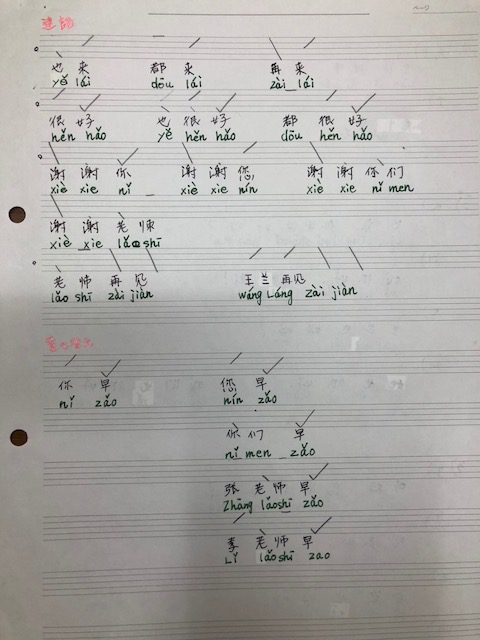 也来 都来 再来
yě lái dōu lái zài lái
很好 也很好 都很好
hěn hǎo yě hěn hǎo dōu hěn hǎo
谢谢你 谢谢您 谢谢你们
xiè xie nǐ xiè xie nín xiè xie nǐ men
谢谢老师
xiè xie lǎo shī
老师再见 王兰再见
lǎo shī zài jiàn wáng Láng zài jiàn
你早 您早
nǐ zǎo nín zǎo
你们早
nǐ men zǎo
张老师早
Zhāng lǎoshī zǎo
李老师早
Lǐ lǎoshī zao